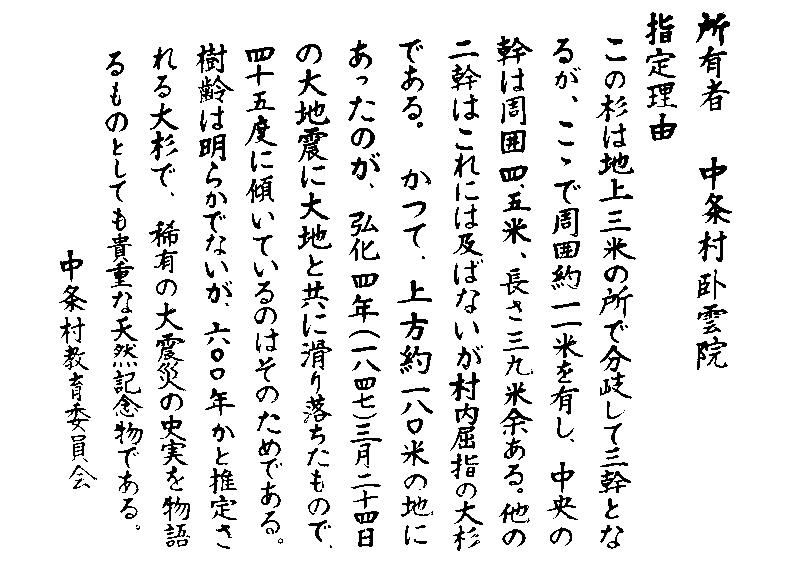 所有者　中条村臥雲院
指定理由
この杉は地上三米の所で分歧して三幹とな
るが、こゝで周囲約一一米を有し、中央の
幹は周囲四.五米、長さ三九米余ある。他の
二幹はこれには及ばないが村内屈指の大杉
である。　かつて、上方約一八〇米の地に
あったのが、弘化四年(一八四七)三月二十四日
の大地震に大地と共に滑り落ちたもので、
四十五度に傾いているのはそのためである。
樹齢は明らかでないが、六〇〇年かと推定さ
れる大杉で、稀有の大震災の史実を物語
るものとしても貴重な天然記念物である。
中条村教育委員会